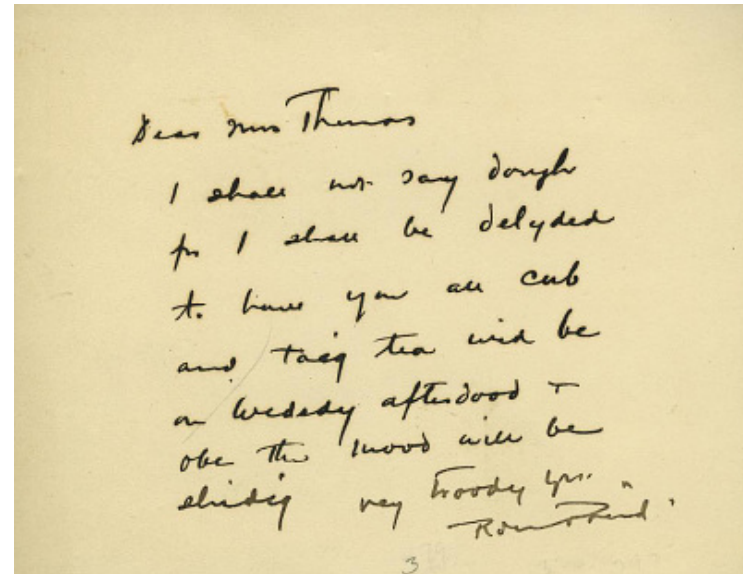 Dear Mrs Thomas
I shall not say dough
for I shall be delyded
to have you all cub
and taeg tea wid be
on Wededy afterdood +
obe the mood will be
shidig vey troody yrs.
3